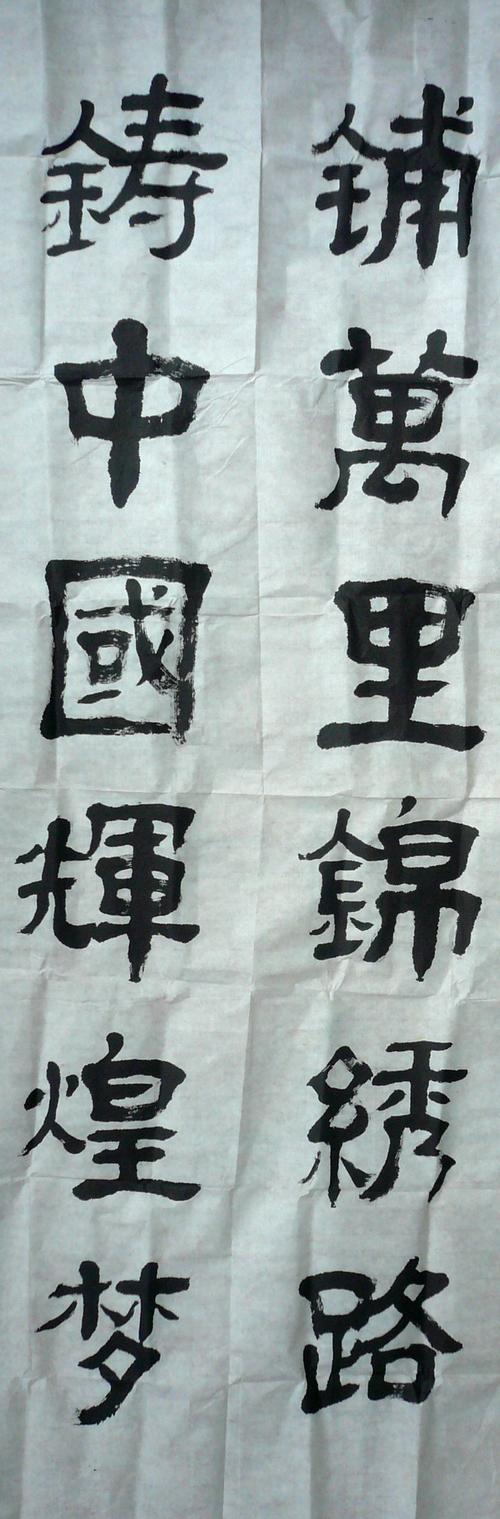 铺萬里錦綉路
鋳中國輝煌梦